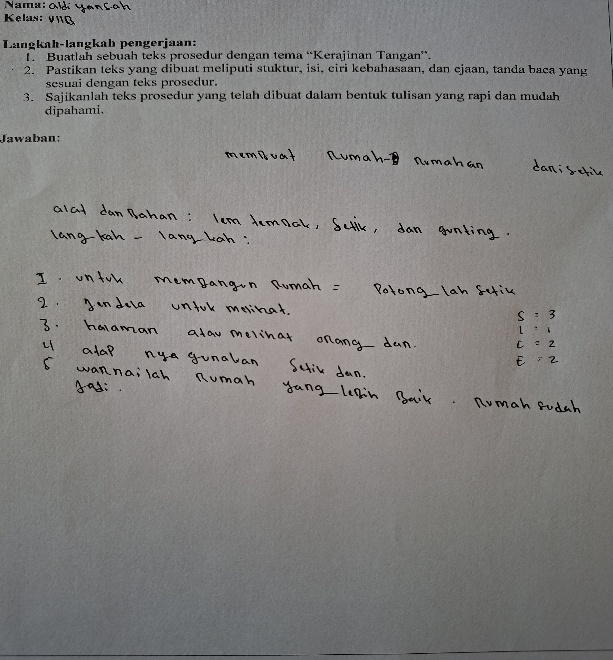 Nama: aldi yansah
Kelas: VIIB
Langkah-langkah pengerjaan:
1. Buatlah sebuah teks prosedur dengan tema “Kerajinan Tangan”.
2. Pastikan teks yang dibuat meliputi stuktur, isi, ciri kebahasaan, dan ejaan, tanda baca yang
sesuai dengan teks prosedur.
3. Sajikanlah teks prosedur yang telah dibuat dalam bentuk tulisan yang rapi dan mudah
dipahami.
Jawaban:
membuat Rumah-Rumahan dari setik
alat dan Bahan : lem tembak, setik, dan gunting.
langkah - langkah :
1. untuk membangun Rumah = Potong lah setik
2. Jendela untuk melihat.
3. halaman atau melihat orang dan.
4 atap nya gunakan setik dan.
5 warnailah Rumah yang lebih Baik. Rumah sudah
Jadi.
S = 3
I = 1
C = 2
E = 2